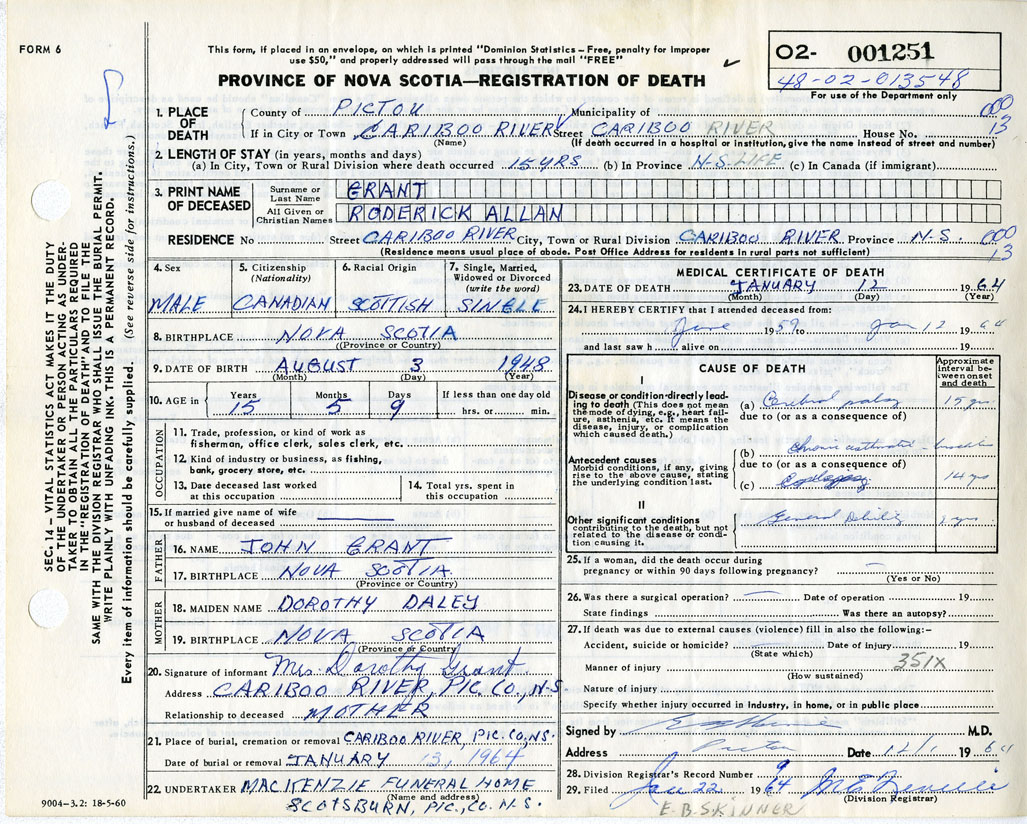 FORM 6
This form, if placed in an envelope, on which is printed "Dominion Statistics – Free, penalty for improper
use $50," and properly addressed will pass through the mail "FREE"
PROVINCE OF NOVA SCOTIA—REGISTRATION OF DEATH
O2- 001251
48-02-013548
For use of the Department only
SEC. 14 – VITAL STATISTICS ACT MAKES IT THE DUTY
OF THE UNDERTAKER OR PERSON ACTING AS UNDER-
TAKER TO OBTAIN ALL THE PARTICULARS REQUIRED
IN THE "REGISTRATION OF DEATH" AND TO FILE THE
SAME WITH THE DIVISION REGISTRAR WHO SHALL ISSUE THE BURIAL PERMIT.
WRITE PLAINLY WITH UNFADING INK. THIS IS A PERMANENT RECORD.
Every item of information should be carefully supplied. (See reverse side for instructions.)
1. PLACE OF DEATH
County of PICTOU Municipality of 000
If in City or Town CARIBOO RIVER Street CARIBOO RIVER House No. 13
(Name) (If death occurred in a hospital or institution, give the name instead of street and number)
2. LENGTH OF STAY (in years, months and days)
(a) In City, Town or Rural Division where death occurred 15 YRS (b) In Province N-S-LIFE (c) In Canada (if immigrant)
3. PRINT NAME OF DECEASED
Surname or Last Name GRANT
All Given or Christian Names RODERICK ALLAN
RESIDENCE No Street CARIBOO RIVER City, Town or Rural Division CARIBOO RIVER Province N-S. 000
(Residence means usual place of abode. Post Office Address for residents in rural parts not sufficient) 13
4. Sex MALE
5. Citizenship (Nationality) CANADIAN
6. Racial Origin SCOTTISH
7. Single, Married, Widowed or Divorced (write the word) SINGLE
8. BIRTHPLACE NOVA SCOTIA
(Province or Country)
9. DATE OF BIRTH AUGUST 3 1948
(Month) (Day) (Year)
10. AGE in Years 15 Months 5 Days 9 If less than one day old hrs. or min.
OCCUPATION
11. Trade, profession, or kind of work as
fisherman, office clerk, sales clerk, etc.
12. Kind of industry or business, as fishing,
bank, grocery store, etc.
13. Date deceased last worked at this occupation
14. Total yrs. spent in this occupation
15. If married give name of wife
or husband of deceased
FATHER
16. NAME JOHN GRANT
17. BIRTHPLACE NOVA SCOTIA
(Province or Country)
MOTHER
18. MAIDEN NAME DOROTHY DALEY
19. BIRTHPLACE NOVA SCOTIA
(Province or Country)
20. Signature of informant Mrs. Dorothy Grant
Address CARIBOO RIVER, PIC. CO., N-S
Relationship to deceased MOTHER
21. Place of burial, cremation or removal CARIBOO RIVER, PIC. CO., NS.
Date of burial or removal JANUARY 13, 1964
22. UNDERTAKER MACKENZIE FUNERAL HOME
(Name and address)
SCOTSBURN, PIC., CO. N.S.
9004–3.2: 18-5-60
MEDICAL CERTIFICATE OF DEATH
23. DATE OF DEATH JANUARY 12 1964
(Month) (Day) (Year)
24. I HEREBY CERTIFY that I attended deceased from:
June 1959 to Jan 12 1964
and last saw h alive on 19
CAUSE OF DEATH
Approximate interval between onset and death
I
Disease or condition directly leading to death (This does not mean the mode of dying, e.g., heart failure, asthenia, etc. It means the disease, injury, or complication which caused death.)
(a) Cerebral palsy 15 yrs
due to (or as a consequence of)
Antecedent causes
Morbid conditions, if any, giving rise to the above cause, stating the underlying condition last.
(b) Chronic
due to (or as a consequence of)
(c) 14 yrs
II
Other significant conditions contributing to the death, but not related to the disease or condition causing it.
General Debility yrs
25. If a woman, did the death occur during
pregnancy or within 90 days following pregnancy? –
(Yes or No)
26. Was there a surgical operation? — Date of operation 19
State findings Was there an autopsy?
27. If death was due to external causes (violence) fill in also the following:–
Accident, suicide or homicide? Date of injury 19
(State which)
Manner of injury 351X
(How sustained)
Nature of injury
Specify whether injury occurred in industry, in home, or in public place
Signed by M.D.
Address Pictou Date 12/1 1964
28. Division Registrar's Record Number 9
29. Filed Jan 22 1964
(Division Registrar)
E.B. SKINNER